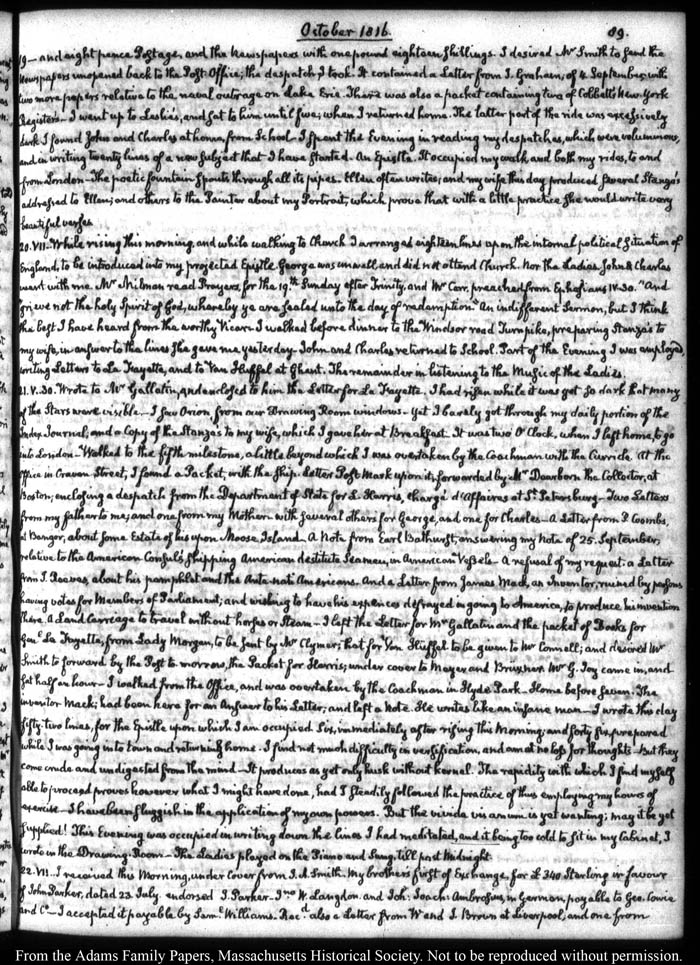 October 1816.
89.
19— and eight pence Postage, and the Newspapers with one pound eighteen shillings. I desired Mr Smith to send the
Newspapers unopened back to the Post-Office; the despatch I took. It contained a Letter from J. Graham, of 4 September, with
two more papers relative to the naval outrage on Lake Erie. There was also a packet containing two of Cobbett's New-York
Registers— I went up to Leslie's, and sat to him until five; when I returned home. The latter part of the ride was excessively
dark I found John and Charles at home, from School. I spent the Evening in reading my despatches, which were voluminous,
and in writing twenty lines of a new subject that I have started. An Epistle. It occupied my walk and both my rides, to and
from London— The poetic fountain spouts through all its pipes. Ellen often writes; and my wife this day produced several Stanza's
addressed to Ellen; and others to the Painter about my Portrait; which prove that with a little practice She would write very
beautiful verses.
20. VII. While rising this morning, and while walking to Church I arranged eighteen lines upon the internal political Situation of
England, to be introduced into my projected Epistle. George was unwell, and did not attend Church. Nor the Ladies. John & Charles
went with me. Mr Milman read Prayers, for the 19th Sunday after Trinity, and Mr Carr, preached from Ephesians IV. 30. "And
grieve not the holy Spirit of God, whereby ye are sealed unto the day of redemption." An indifferent Sermon, but I think
the best I have heard from the worthy Vicar. I walked before dinner to the Windsor road Turnpike, preparing Stanza's to
my wife, in answer to the lines she gave me yesterday. John and Charles returned to School. Part of the Evening I was employed
writing Letters to La Fayette, and to Van Huffel at Ghent. The remainder in listening to the Music of the Ladies.
21. V. 30. Wrote to Mr Gallatin, and enclosed to him the Letter for La Fayette. I had risen while it was yet so dark that many
of the Stars were visible— I saw Orion from our Drawing Room windows— Yet I barely got through my daily portion of the
Index, Journal, and a Copy of the Stanza's to my wife, which I gave her at Breakfast. It was two O'Clock, when I left home, to go
into London— Walked to the fifth milestone, a little beyond which I was overtaken by the Coachman with the Curricle. At the
Office in Craven-Street, I found a Packet, with the Ship-Letter Post Mark upon it, forwarded by Mr Dearborn the Collector, at
Boston; enclosing a despatch from the Department of State for L. Harris, chargé d'Affaires at St. Petersburg— Two Letters
from my father to me; and one from my Mother— with several others for George, and one for Charles— A Letter from P. Coombs,
at Bangor, about some Estate of his upon Moose Island. A Note from Earl Bathurst, answering my Note of 25. September,
relative to the American Consul's Shipping American destitute Seamen, in American Vessels— A refusal of my request: a Letter
from J. Reeves, about his pamphlet and the Ante-nati Americans. And a Letter from James Mack, an Inventor, ruined by persons
having votes for Members of Parliament; and wishing to have his expences defrayed in going to America, to produce his invention
there. A Land Carriage to travel without horses or Steam— I left the Letter for Mr Gallatin and the packet of Books for
Genl. La Fayette, from Lady Morgan, to be sent by Mr Clymer; that for Van Huffel to be given to Mr Connell; and desired Mr
Smith to forward by the Post to-morrow, the Packet for Harris; under cover to Meyer and Bruxner. Mr G. Joy came in, and
sat half an hour— I walked from the Office, and was overtaken by the Coachman in Hyde Park— Home before seven. The
inventor Mack; had been here for an Answer to his Letter; and left a Note. He writes like an insane man— I wrote this day
fifty-two lines, for the Epistle upon which I am occupied. Six, immediately after rising this Morning; and forty six, prepared
while I was going into town and returning home. I find not much difficulty in versification, and am at no loss for thoughts— But they
come crude and undigested from the mind— It produces as yet only husk without kernel. The rapidity with which I find myself
able to proceed proves however what I might have done, had I steadily followed the practice of thus employing my hours of
exercise— I have been sluggish in the application of my own powers. But the vivida vis animi is yet wanting; may it be yet
supplied! This Evening was occupied in writing down the lines I had meditated, and it being too cold to sit in my Cabinet, I
wrote in the Drawing-Room— The Ladies played on the Piano and Sung, till past Midnight.
22. VII— I received this Morning, under cover from J. A. Smith. My brother's first of Exchange, for £340 Sterling in favour
of John Parker, dated 23. July. endorsed J. Parker— Jno W. Langdon. and Joh: Joach: Ambrosius, in German, payable to Geo. Cowie
and Co— I accepted it payable by Saml. Williams. Recd. also a Letter from W and J. Brown at Liverpool, and one from
From the Adams Family Papers, Massachusetts Historical Society. Not to be reproduced without permission.